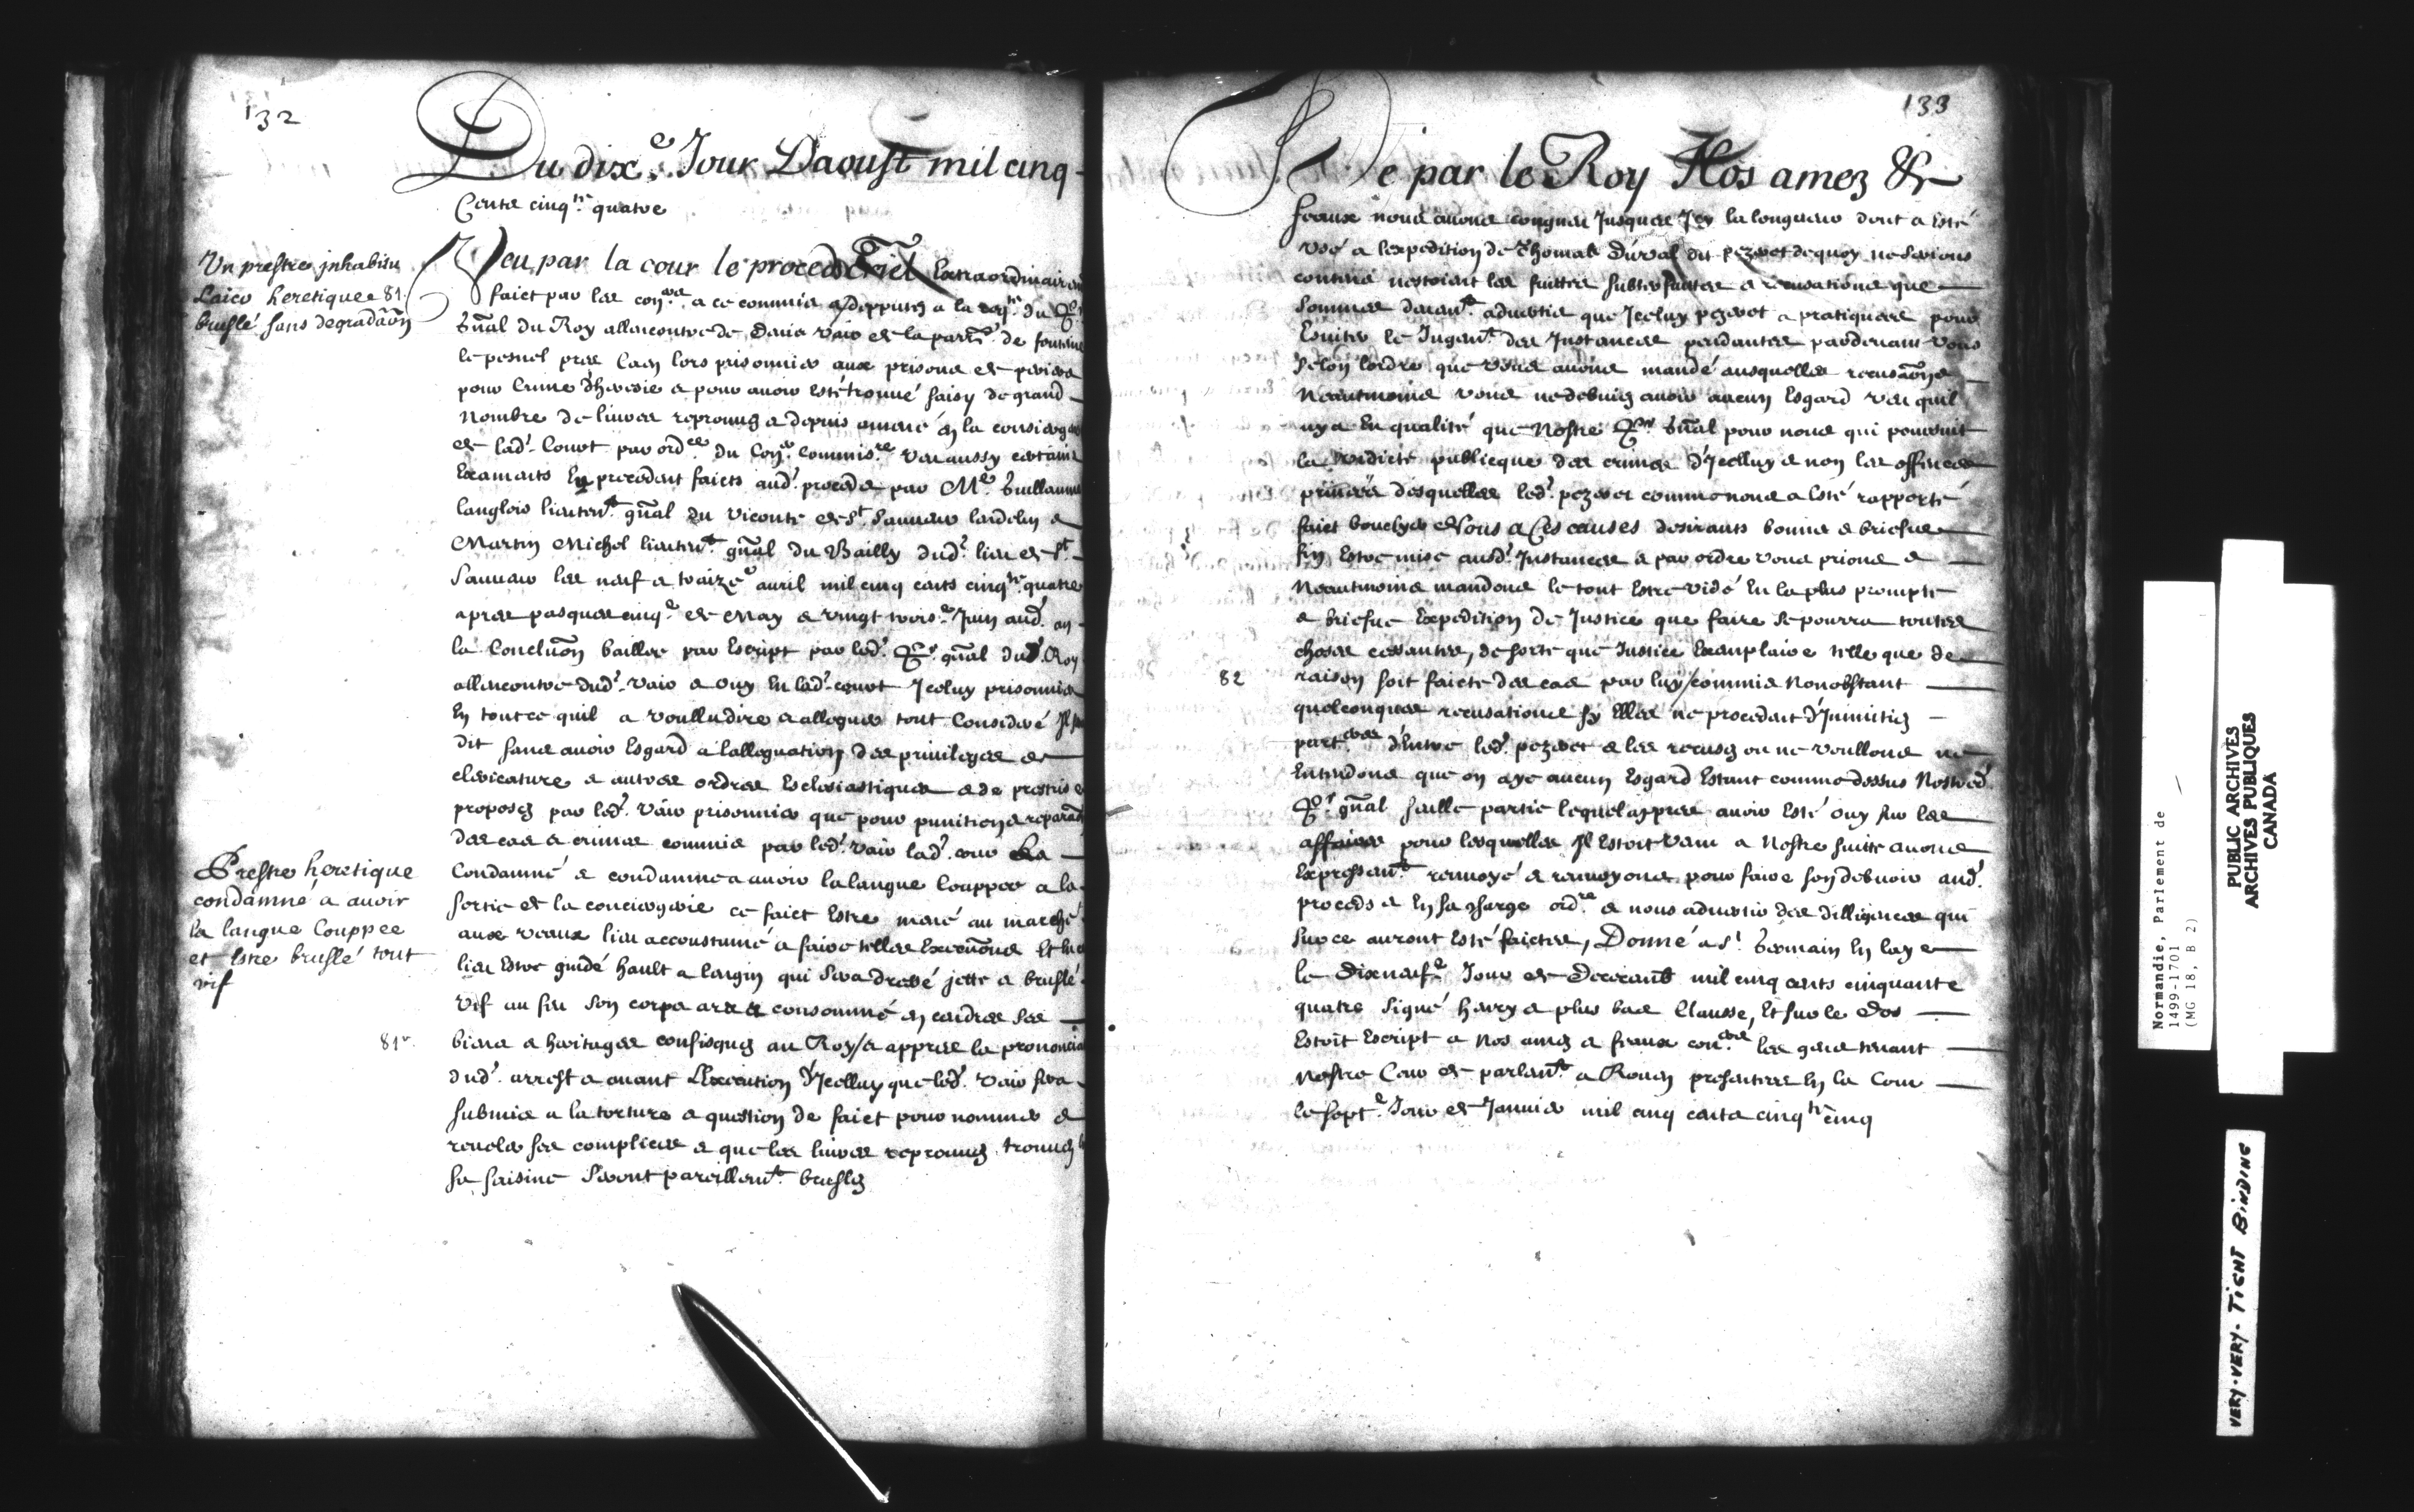 132
Du dix.e Jour Daoust mil cinq
Cents cinq.te quatre
Un prestre inhabitu
Laico heretique 81.
bruslé sans degradaôn
Veu par la cour le proceds Criel Extraordinairem
faict par les con.ers a ce commis & depputez a la req.te du P.r
gñal du Roy allencontre de Denis Vair de la parr.e de fontaine
le pesnel pres Caen lors prisonnier aux prisons de periers
pour Crime dheresie & pour avoir Esté trouvé saisy de grand
Nombre de livres reprouvez & depuis amené en la consierge
de lad. Court par ord.ce du Con.er Commis.re Veu aussy certains
Examents En procedant faicts aud. proceds par M.e Guillaume
langlois lieuten.t gñal du viconte de S.t Sauveur landelin &
Martin Michel lieuten.t gñal du Bailly dud. lieu de S.t
Sauveur les neuf & traize.e avril mil cinq cents cinq.te quatre
apres pasques cinq.e de May & vingt trois.e Juin aud. an
la Concluõn baillee par Escript par led. P.r gñal dud. Roy
allencontre dud. Vair & Ouy En lad. court Jceluy prisonnier
En tout ce quil a voullu dire & alleguer tout Consideré Il
dit sans avoir Esgard a lallegation des privileges de
clericature & autres ordres Eclesiastiques & de prestrise
proposez par led. Vair prisonnier que pour punition & reparaôn
des cas & crimes commis par led. Vair lad. cour La
Prestre heretique
condamné a avoir
la langue Couppee
et Estre bruslé tout
vif
Condamné & condamne a avoir la langue Couppee a la
sortie de la conciergerie ce faict Estre mené au marché
aux veaux lieu accoustumé a faire telles Execuõns Et
lieu Estre guidé hault a lengin qui sera dressé jetté & bruslé
Vif au feu son corps ars & consommé en cendres ses
81v.
biens & heritages confisquez au Roy/& appres la prononcia
dud. arrest & avant L'execution d'Jcelluy que led. Vair sera
submis a la torture & question de faict pour nommer &
reveler ses complices & que les livres reprouvez trouvez
sa saisine Seront pareillem.t bruslez
133
De par le Roy Nos amez &
feaux nous avons congneu Jusques Jcy la longueur dont a Esté
Usé a lexpedition de Thomas Duval dit pezeret dequoy ne serions
contens nestoient les fuittes subterfuittes & recusations que
Sommes deuem.t advertis que Jceluy pezeret a pratiquees pour
Eviter le Jugem.t des Instances pendantes pardevant Vous
Selon lordre que Vous avons mandé ausquelles recusaõns
Neantmoins vous ne debviez avoir aucun Esgard veu quil
ny a En qualité que Nostre P.r gñal pour nous qui poursuit
la Vindicte publicque des crimes d'Jcelluy & non les offences
privees desquelles led. pezeret comme nous a Esté rapporté
faict bouclyer Nous a Ces causes desirants bonne & briefve
fin Estre mise ausd. Instances & par ordre vous prions &
Neantmoins mandons le tout Estre vidé En la plus prompte
& briefve Expedition de Justice que faire se pourra touttes
choses cessantes, de sorte que Justice Exemplaire telle que de
82
raison soit faicte des cas par luy/commis Nonobstant
quelconques recusations sy Elles ne procedent d'Inimitiez
part.eres d'Entre led. pezeret & les recusez ou ne voullons ne
Entendons que on aye aucun Esgard Estant comme dessus Nostred.
P.r gñal seulle partie lequel appres avoir Esté Ouy sur les
affaires pour lesquelles Il Estoit venu a Nostre suitte avons
Expressem.t renvoyé & renvoyons pour faire son debvoir aud.
proceds & En sa charge ord.re & nous advertir des dilligences qui
sur ce auront Esté faictes, Donné a S.t Germain En laye
le Dixneuf.e Jour de Decemb. mil cinq cents cinquante
quatre Signé henry & plus bas Clausse, Et sur le Dos
Estoit Escript a Nos amez & feaux con.ers les gens tenant
Nostre Cour de parlem.t a Rouen presentees En la Cour
le Sept.e Jour de Janvier mil cinq cents cinq.te cinq
Normandie, Parlement de
1499-1701
(MG 18, B 2)
PUBLIC ARCHIVES
ARCHIVES PUBLIQUES
CANADA
VERY-VERY-TIGHT BINDING